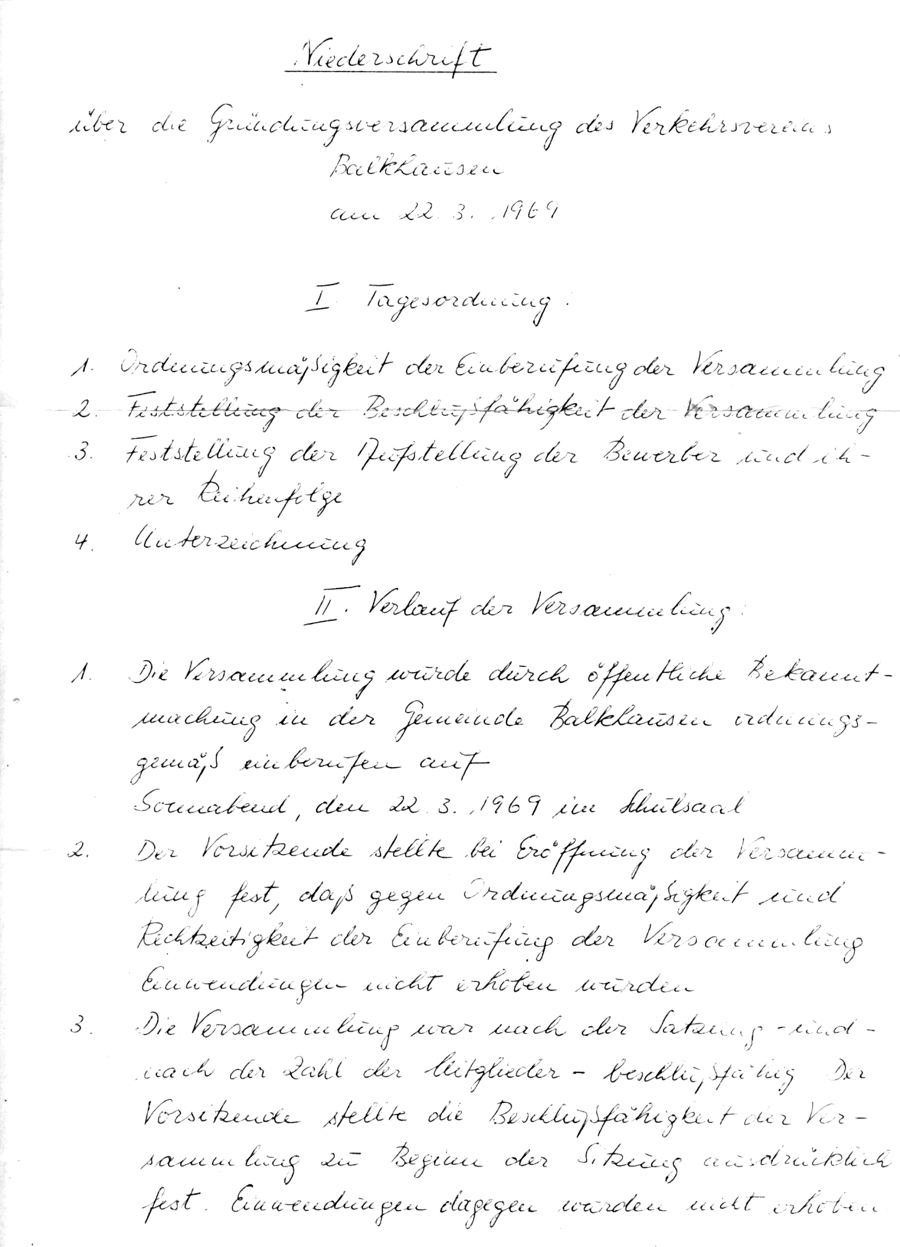 Niederschrift
über die Gründungsversammlung des Verkehrsvereins
Balkhausen
am 22.3.1969
I. Tagesordnung:
1. Ordnungsmäßigkeit der Einberufung der Versammlung
2. Feststellung der Beschlußfähigkeit der Versammlung
3. Feststellung der Aufstellung der Bewerber und ih-
rer Reihenfolge
4. Unterzeichnung
II. Verlauf der Versammlung:
1. Die Versammlung wurde durch öffentliche Bekannt-
machung in der Gemeinde Balkhausen ordnungs-
gemäß einberufen auf
Sonnabend, den 22.3.1969 im Schulsaal
2. Der Vorsitzende stellte bei Eröffnung der Versamm-
lung fest, daß gegen Ordnungsmäßigkeit und
Rechtzeitigkeit der Einberufung der Versammlung
Einwendungen nicht erhoben wurden
3. Die Versammlung war nach der Satzung - und -
nach der Zahl der Mitglieder - beschlußfähig Der
Vorsitzende stellte die Beschlußfähigkeit der Ver-
sammlung zu Beginn der Sitzung ausdrücklich
fest. Einwendungen dagegen wurden nicht erhoben